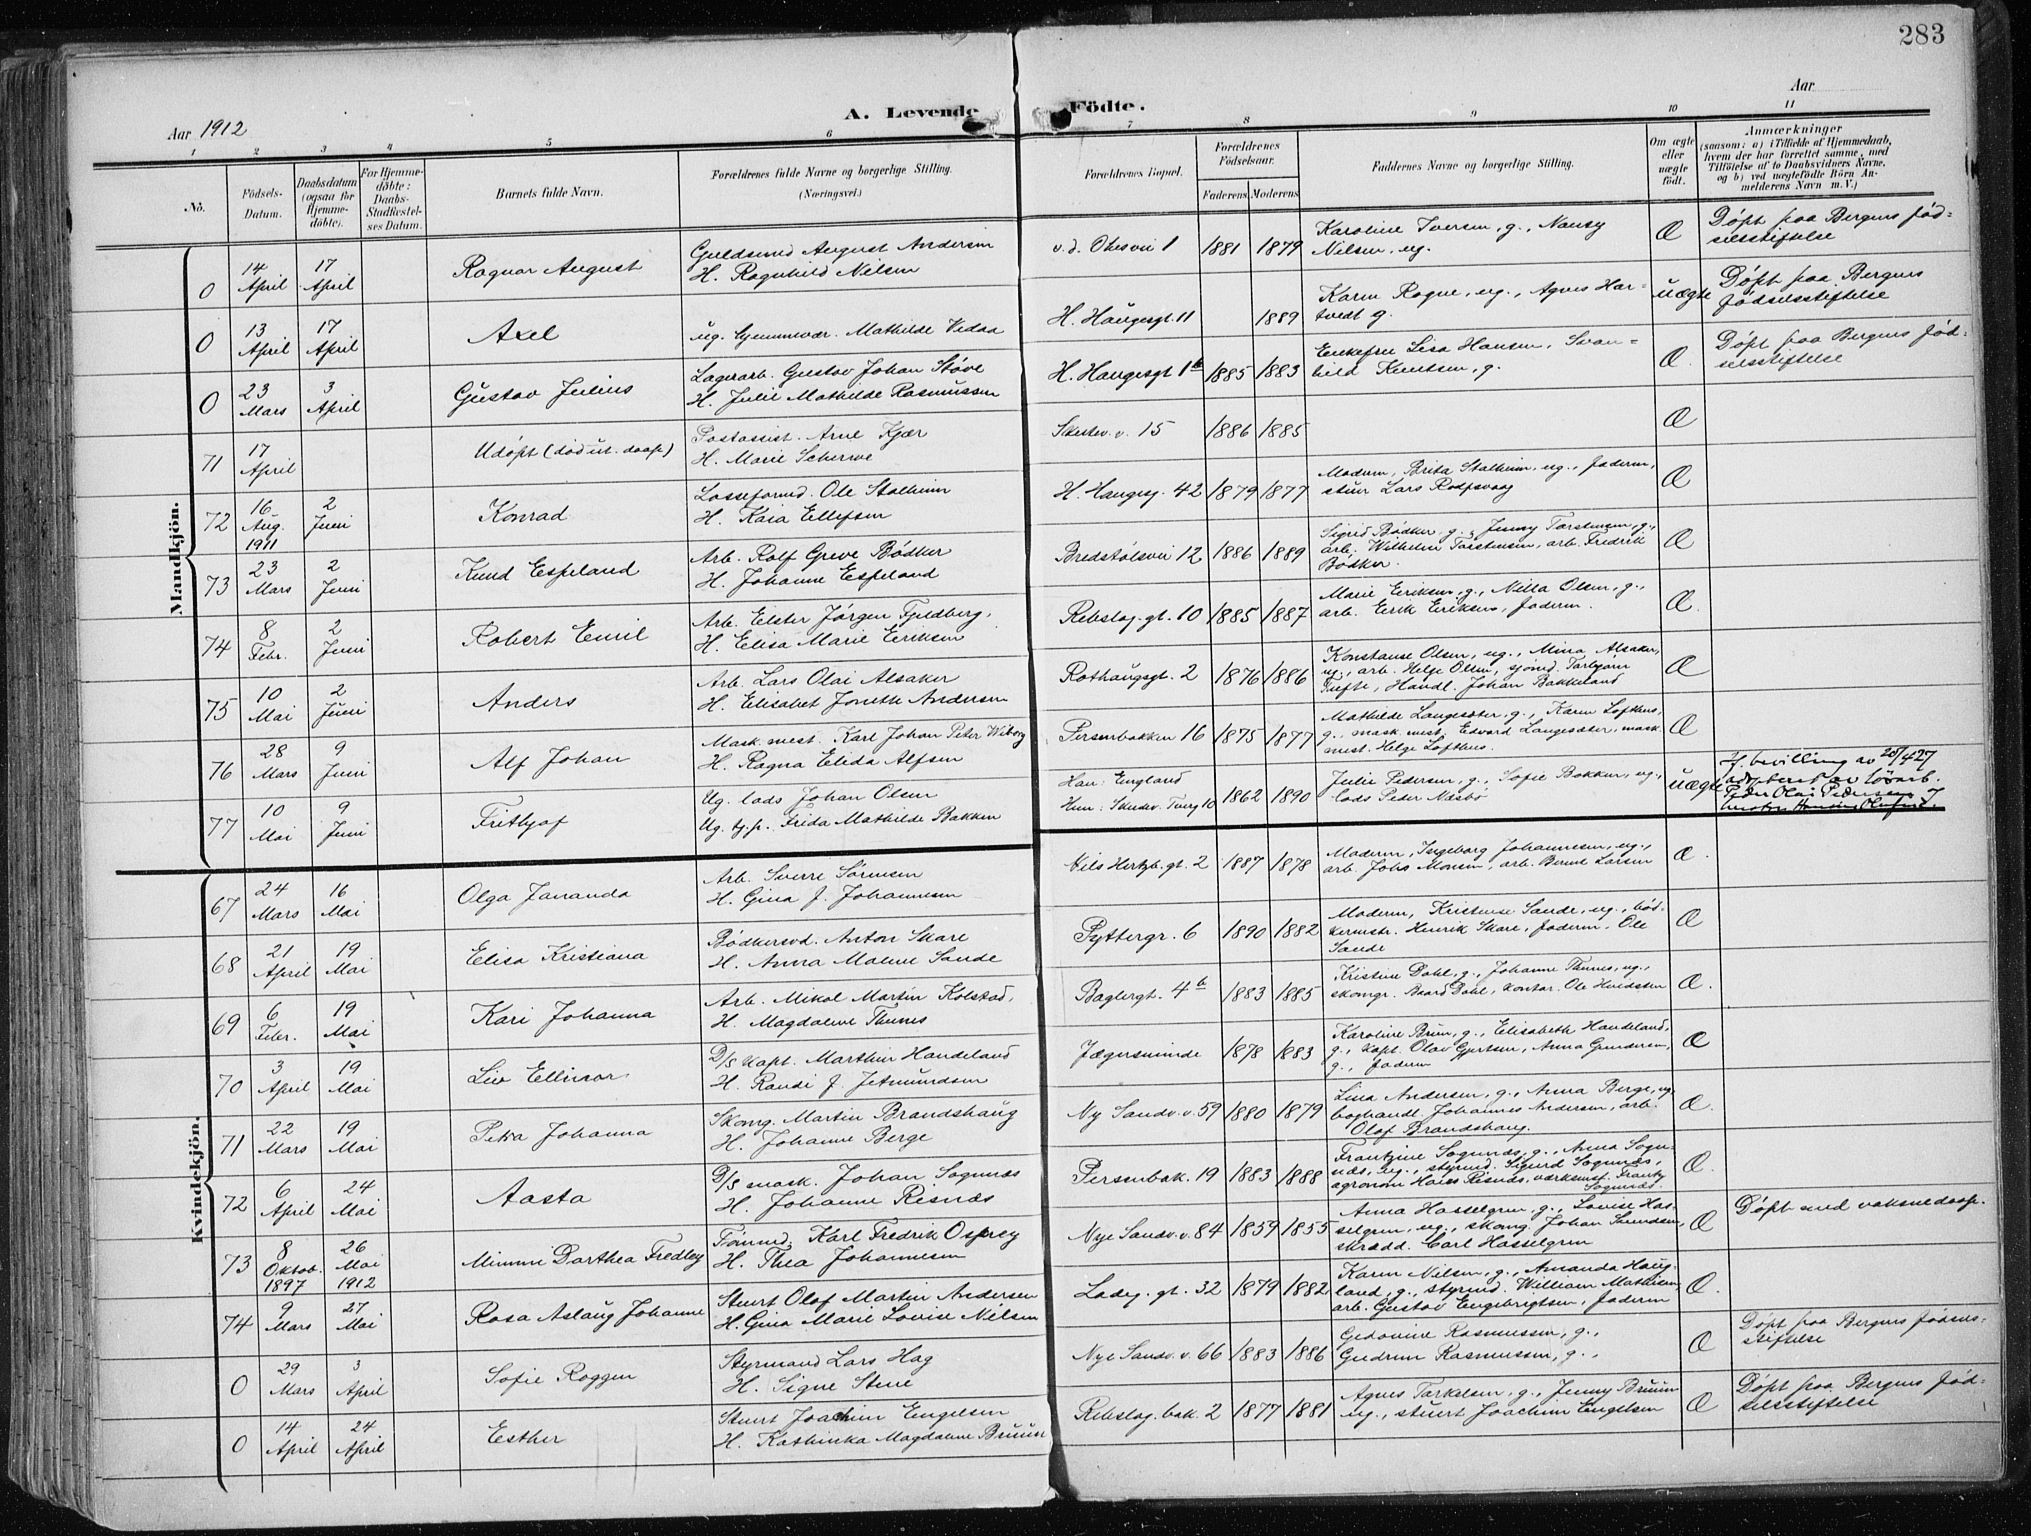 283
Aar 1912
A. Levende Födte.
Aar
1 2 3 4 5 6 7 8 9 10 11
No.
Födsels-Datum.
Daabsdatum (ogsaa for Hjemme-döbte).
For Hjemme-döbte: Daabs-Stadfæstel-ses Datum.
Barnets fulde Navn.
Forældrenes fulde Navne og borgerlige Stilling. (Næringsvei.)
Forældrenes Bopæl.
Forældrenes Födselsaar.
Faderens Moderens
Faddernes Navne og borgerlige Stilling.
Om ægte eller uægte födt.
Anmærkninger
(saasom: a) i Tilfælde af Hjemmedaab, hvem der har forrettet samme, med Tilföielse af to Daabsvidners Navne, og b) ved uægtefödte Börn An-melderens Navn m. V.)
Mandkjön.
0 14 April 17 April Ragnar August
Guldsmed August Andersen
H. Ragnhild Nilsen
1881 1879
Karoline Iversen, g., Nancy
Nilsen, ug.
Æ
Døpt paa Bergens fød-
selsstiftelse
0 13 April 17 April Axel
ug. Mathilde Vedaa
H. Haugesgt. 11 1889
Karen Rogne, ug., Agnes Har-
tvedt g.
uægte
Døpt paa Bergens
fødselsstiftelse
0 23 Mars 3 April Gustav Julius
Lagerarb. Gustav Johan Støve
H. Julie Mathilde Rasmussen
H. Haugesgt 1b 1885 1883
Enkefru Lisa Hansen, Svan-
hild Knutsen, g.
Æ
Døpt paa Bergens fød-
selsstiftelse
71 17 April Udøpt (død ut. daap)
Postassist. Arne Kjær
H. Marie
Skutev. v. 15 1886 1885
Æ
72 16 Aug. 1911 2 Juni Konrad
Losseformd. Ole Stalheim
H. Kaia Ellefsen
H. Haugesg. 42 1879 1877
Moderen, Brita Stalheim, ug., Faderen,
stuer Lars
Æ
73 23 Mars 2 Juni Knud Espeland
Arb. Rolf Greve Bødker
H. Johanne Espeland
Bredstølsvei 12 1886 1889
Sigrid Bødker, g., Jenny Torstensen, g.,
arb. Wilhelm Torstensen, arb. Fredrik
Bødker.
Æ
74 8 Febr. 2 Juni Robert Emil
Arb. Elster Jørgen Fjeldberg,
H. Elisa Marie Eriksen
Rebslag. gt. 10 1885 1887
Marie Eriksen, g., Nilla Olsen, g.,
arb. Erik Eriksen, Faderen.
Æ
75 10 Mai 2 Juni Anders
Arb. Lars Olai Alsaker
H. Elisabet Jonette Andersen
Rothaugsgt. 2 1876 1886
Konstanse Olsen, ug., Mina Alsaker,
ug., arb. Helge Olsen, sjømd. Torbjørn
Tufte, Handl. Johan Bakkeland
Æ
76 28 Mars 9 Juni Alf Johan
Mask. mest. Karl Johan Peter Wiborg
H. Ragna Elida Alfsen
Persenbakken 16 1875 1877
Mathilde Langesæter, g., Karen Lofthus,
g., mask. mest. Edvard Langesæter, mask.
mest. Helge Lofthus.
Æ
77 10 Mai 9 Juni Fritjof
Ug. lods Johan Olsen
Ug. tj.p. Frida Mathilde Bakken
Han: England
Hun: Skutev. Tverg 10 1862 1890
Julie Pedersen, g., Sofie Bakken, ug.,
lods Peder Næsbø
uægte
If. bevilling av 20/4 27
adoptert av løsarb.
Peder Olai Pedersen
Kvindekjön.
67 24 Mars 16 Mai Olga Jananda
Arb. Sverre Sørensen
H. Gina J. Johannesen
Nils Hertzb. gt. 2 1887 1878
Moderen, Ingeborg Johannesen, ug.,
arb. Johs Monsen, arb. Bernt Larsen
Æ.
68 21 April 19 Mai Elisa Kristiana
Bødkersvd. Anton Skare
H. Anna Maline Sande
Pyttergr. 6 1890 1882
Moderen, Kristense Sande, ug., bød-
kermstr. Henrik Skare, Faderen, Ole
Sande
Æ
69 6 Febr. 19 Mai Kari Johanna
Arb. Mikal Martin Kolstad,
H. Magdalene Thunes
Baglergt. 4b 1883 1885
Kristine Dahl, g., Johanne Thunes, ug.,
skomgr. Baard Dahl, kontor. Ole Hvidsten
Æ.
70 3 April 19 Mai Liv Ellinor
D/S kapt. Marthin Handeland
H. Randi J. Jetmundsen
Jægersminde 1878 1883
Karoline Brun, g., Elisabeth Handeland,
g., kapt. Olav Gjertsen, Anna Gundersen,
g., Faderen
Æ
71 22 Mars 19 Mai Petra Johanna
Skomg. Martin Brandshaug
H. Johanne Berge
Ny Sandv. v. 59 1880 1879
Lina Andersen, g., Anna Berge, ug.
boghandl. Johannes Andersen, arb.
Olaf Brandshaug.
Æ.
72 6 April 24 Mai Aasta
D/S mask. Johan Sognnæs
H. Johanne Risnæs
Persenbak. 19 1883 1888
Frantzine Sognnæs, g., Anna Sogn-
næs, ug., styrmd. Sigurd Sognnæs,
agronom Hans Risnæs, værksmst. Frantz
Sognnæs.
Æ.
73 8 Oktob. 1897 26 Mai 1912 Mimmi Dorthea Fredley
Tømmd. Karl Fredrik Osprey
H. Thea Johannesen
Nye Sandv. v. 84 1859 1855
Anna Hasselgren, g., Lovise Has-
selgren, ug., skomg. Johan Svendsen,
skrædd. Carl Hasselgren
Æ
Døpt med voksnedaap.
74 9 Mars 27 Mai Rosa Aslaug Johanne
Stuert Olaf Martin Andersen
H. Gina Marie Lovise Nilsen
Ladeg. gt. 32 1879 1882
Karen Nilsen, g., Amanda Haug-
land, g., styrmd. William Mathisen,
arb. Gustav Engebrigtsen, Faderen
Æ.
0 29 Mars 3 April Sofie Roggen
Styrmand Lars Hag
H. Signe Stene
Nye Sandv. v. 66 1883 1886
Gedovine Rasmussen, g.,
Gudrun Rasmussen, g.,
Æ
Døpt paa Bergens fødsels-
stiftelse
0 14 April 24 April Esther
Stuert Joachim Engelsen
H. Kathinka Magdalene Bruun
Rebslag. bak. 2 1877 1881
Agnes Torkelsen, g., Jenny Bruun
ug., stuert Joachim Engelsen
Æ
Døpt paa Bergens fød-
selsstiftelse